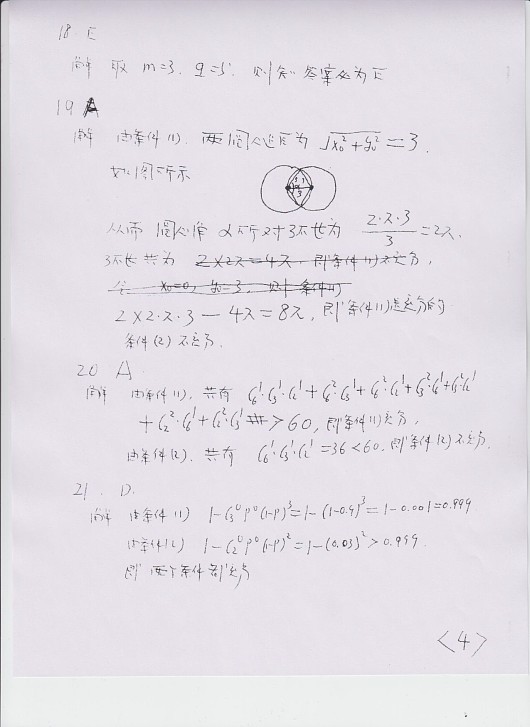 18 E
解 取 m=3, q=5, 则知答案必为E
19 A
解 由条件(1), 两圆心距为 √(x₀²+y₀²) = 3.
如图所示
从而圆心角 α 所对弧长为 2·π·3/3 = 2π.
弧长共为 2×2π=4π, 即条件(1)不充分,
x₀=0, y₀=3, 则条件(1)
2×2·π·3 − 4π = 8π, 即条件(1)是充分的
条件(2)不充分.
20 A
解 由条件(1), 共有 C₆¹·C₃¹·C₂¹ + C₆²·C₃¹ + C₆²·C₂¹ + C₃²·C₆¹ + C₃²·C₂¹
+ C₂²·C₆¹ + C₂²·C₃¹ > 60, 即条件(1)充分,
由条件(2), 共有 C₆¹·C₃¹·C₂¹ = 36 < 60, 即条件(2)不充分.
21. D.
解 由条件(1) 1−C₃⁰P⁰(1−P)³ = 1−(1−0.9)³ = 1−0.001 = 0.999
由条件(2) 1−C₂⁰P⁰(1−P)² = 1−(0.03)² > 0.999.
即两个条件都充分
<4>